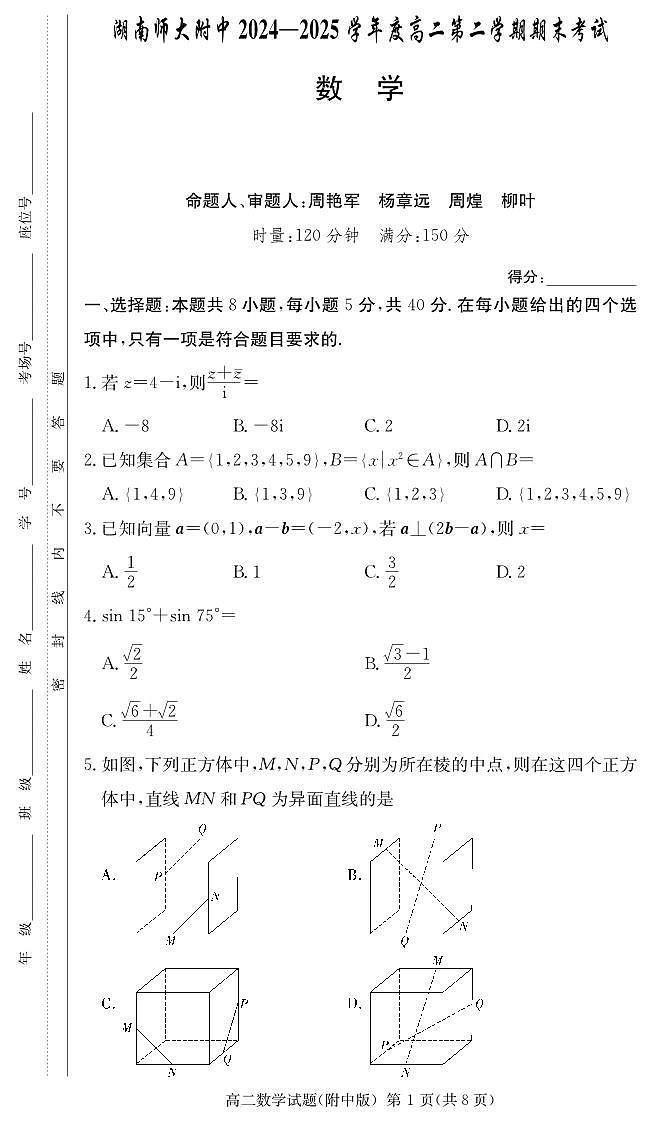 湖南师大附中 2024—2025 学年度高二第二学期期末考试
数 学
命题人、审题人:周艳军 杨章远 周煌 柳叶
时量:120 分钟 满分:150 分
得分:
一、选择题:本题共 8 小题,每小题 5 分,共 40 分. 在每小题给出的四个选
项中,只有一项是符合题目要求的.
1. 若 z=4-i,则 (z+z̅)/i =
A. -8 B. -8i C. 2 D. 2i
2. 已知集合 A={1,2,3,4,5,9},B={x|x²∈A},则 A∩B=
A. {1,4,9} B. {1,3,9} C. {1,2,3} D. {1,2,3,4,5,9}
3. 已知向量 a=(0,1),a-b=(-2,x),若 a⊥(2b-a),则 x=
A. 1/2 B. 1 C. 3/2 D. 2
4. sin 15°+sin 75°=
A. √2/2 B. (√3-1)/2
C. (√6+√2)/4 D. √6/2
5. 如图,下列正方体中,M,N,P,Q 分别为所在棱的中点,则在这四个正方
体中,直线 MN 和 PQ 为异面直线的是
A. Q P N M
B. P M N Q
C. M P Q N
D. M Q P N
高二数学试题(附中版) 第 1 页(共 8 页)
座位号
考场号
学 号
姓 名
班 级
年 级
密 封 线 内 不 要 答 题